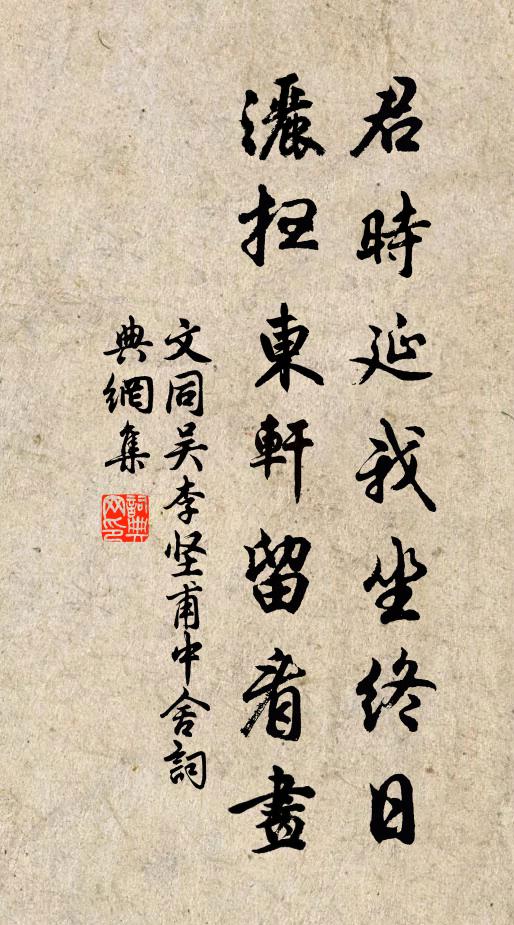 君時延我坐終日
灑掃東軒留看畫
文同吴李坚甫中舍詞
典網集
詞典網印